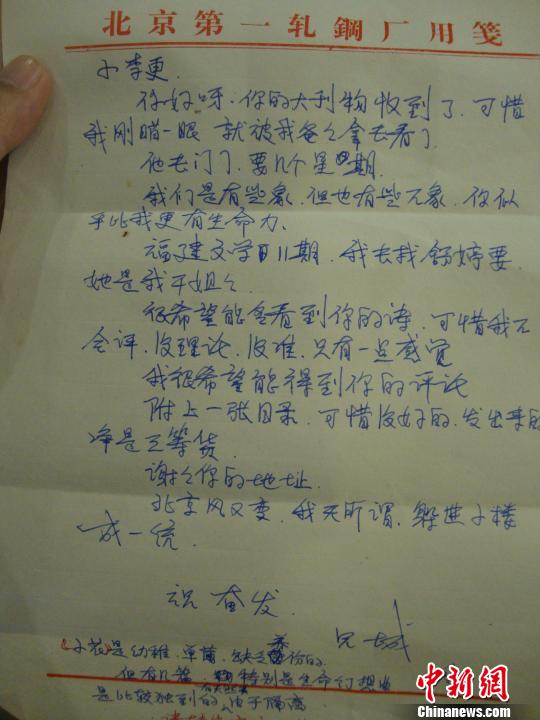 北京第一轧鋼厂用箋
小李更.
你好呀.你的大刊物收到了.可惜
我刚瞄一眼 就被我爸々拿去看了
他出门了.要几个星期.
我们是有些象.但也有些不象.你似
乎比我更有生命力.
福建文学11期.我去找舒婷要.
她是我干姐々
很希望能看到你的诗.可惜我不
会评.没理论.没准.只有一点感觉
我很希望能得到你的评论
附上一张目录.可惜没好的.发出来的
净是三等货.
谢々你的地址.
北京风又变.我无所谓.躲进小楼
成一统.
祝 奋发.
兄 城
《小花》是幼稚.单薄.缺乏养份的.
但有几篇.特别是生命幻想曲
是比较独到的.由于隔离
中新網
Chinanews.com